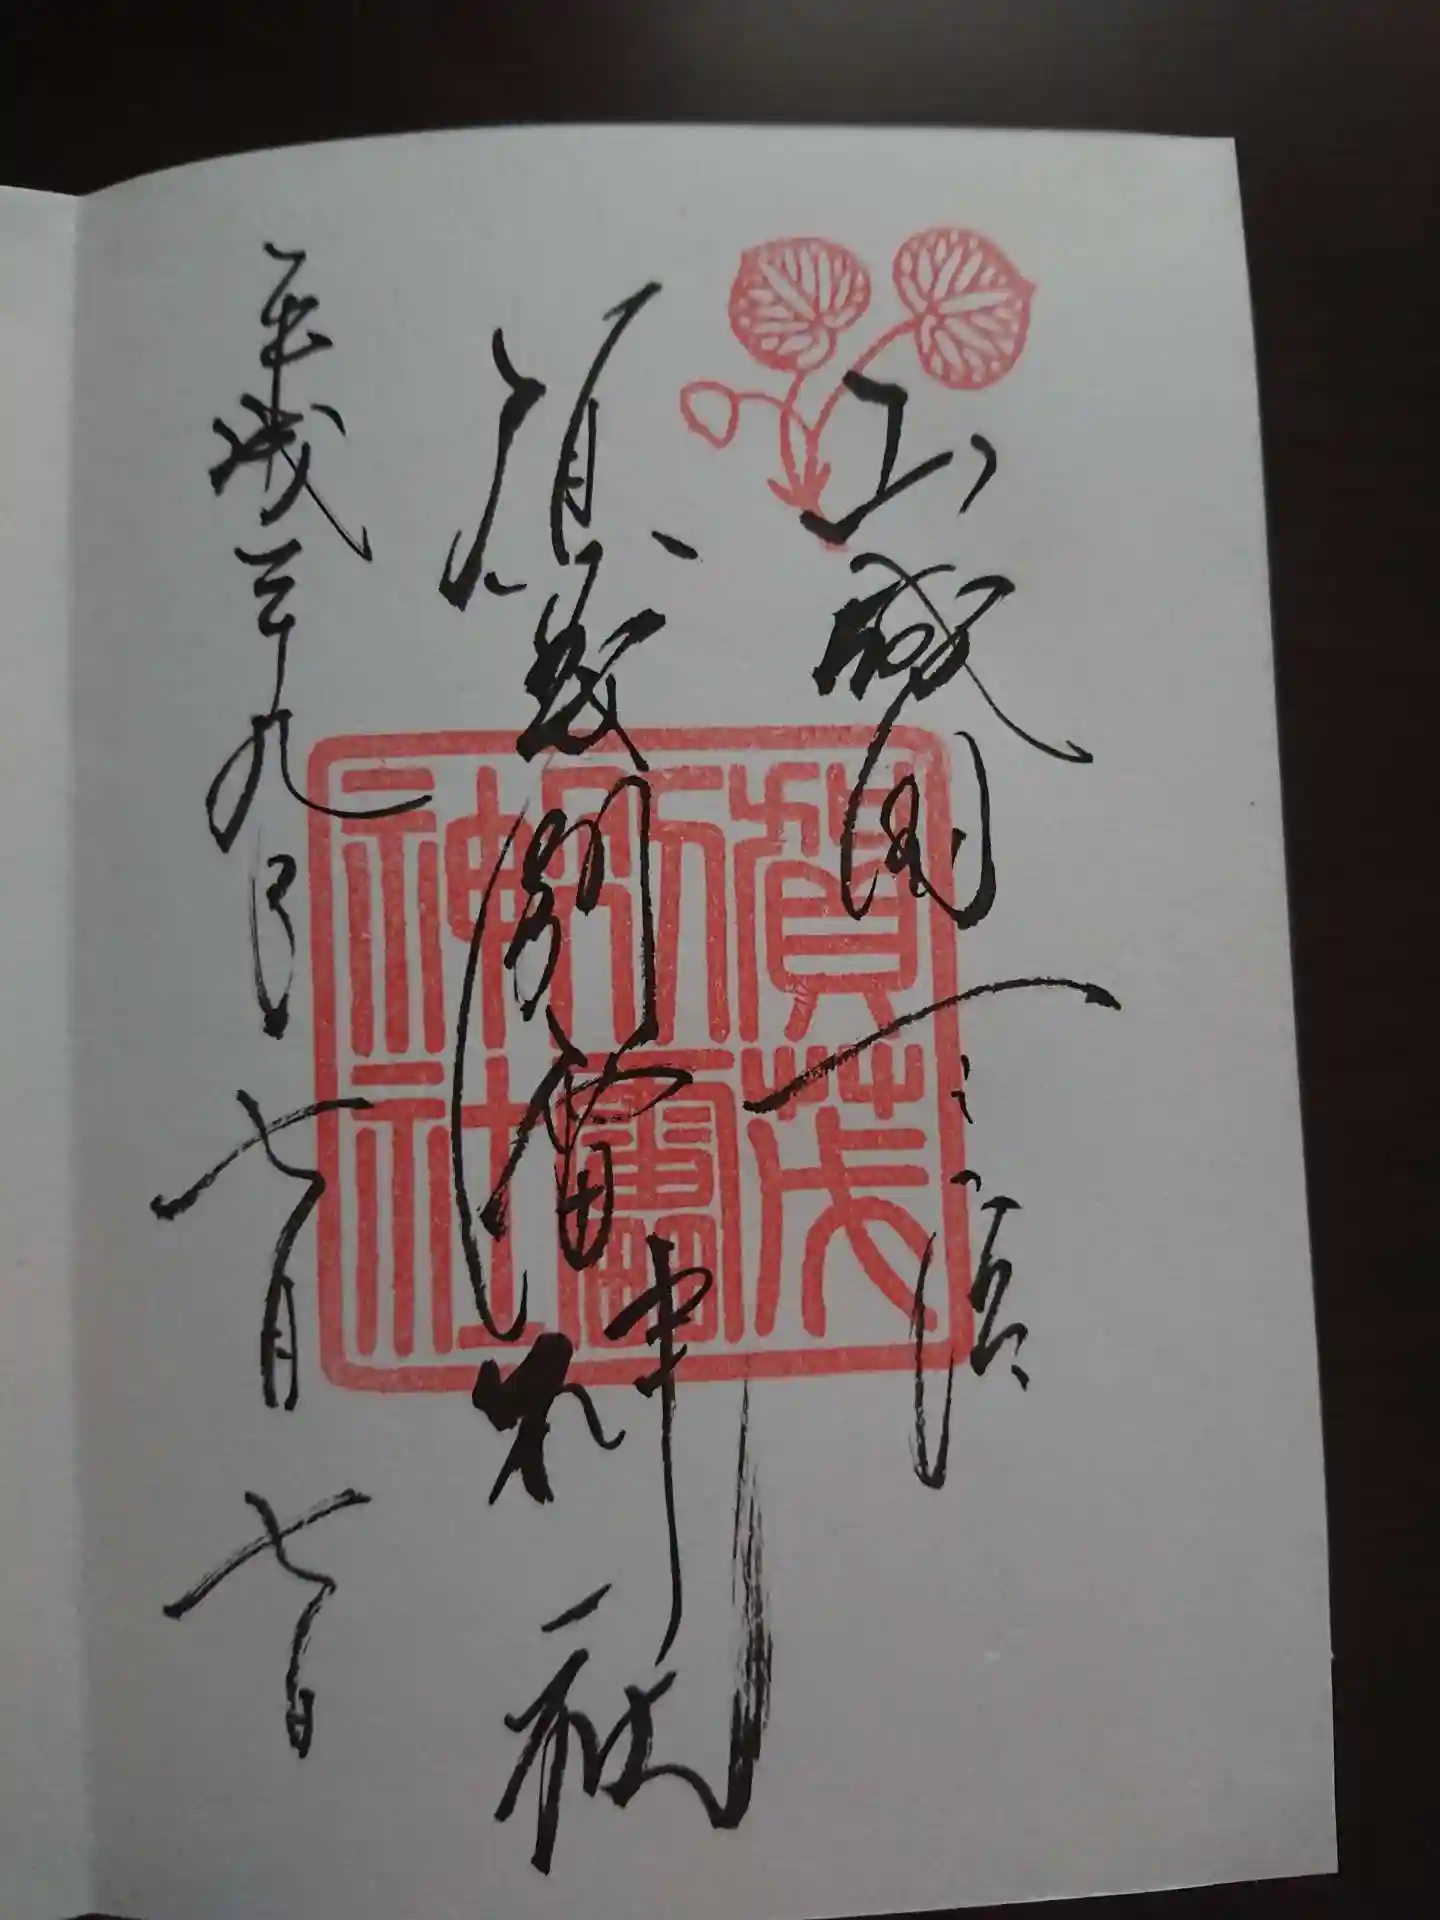 山城国一之宮
賀茂別雷神社
平成二十九年七月七日
賀茂
別雷
神社